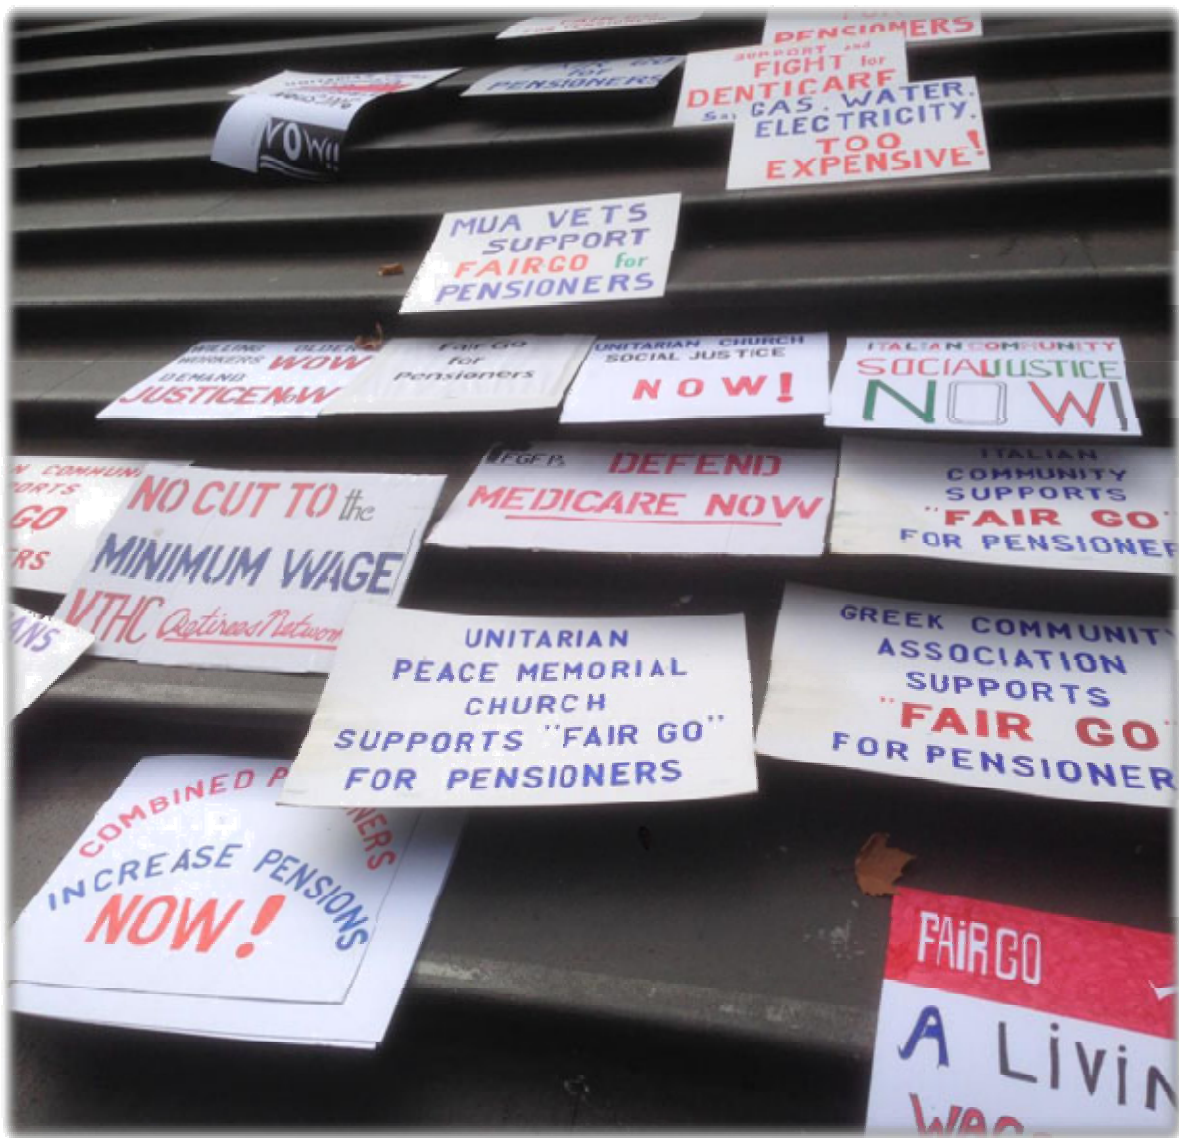 FOR PENSIONERS
FOR
PENSIONERS
for
PENSIONERS
SUPPORT and
FIGHT for
DENTICARE
GAS. WATER.
ELECTRICITY.
TOO
EXPENSIVE!
NOW!!
MUA VETS
SUPPORT
FAIRGO for
PENSIONERS
WILLING OLDER
WORKERS WOW
DEMAND
JUSTICE NOW
Fair Go
for
Pensioners
UNITARIAN CHURCH
SOCIAL JUSTICE
NOW!
ITALIAN COMMUNITY
SOCIAL JUSTICE
NOW!
N COMMUN
ORTS
GO
ERS
NO CUT TO the
MINIMUM WAGE
VTHC Retirees Networ
FGFP, DEFEND
MEDICARE NOW
ITALIAN
COMMUNITY
SUPPORTS
"FAIR GO"
FOR PENSIONER
ANS
UNITARIAN
PEACE MEMORIAL
CHURCH
SUPPORTS "FAIR GO"
FOR PENSIONERS
GREEK COMMUNITY
ASSOCIATION
SUPPORTS
"FAIR GO"
FOR PENSIONER
COMBINED P NERS
INCREASE PENSIONS
NOW!
FAIR GO
A LiViN